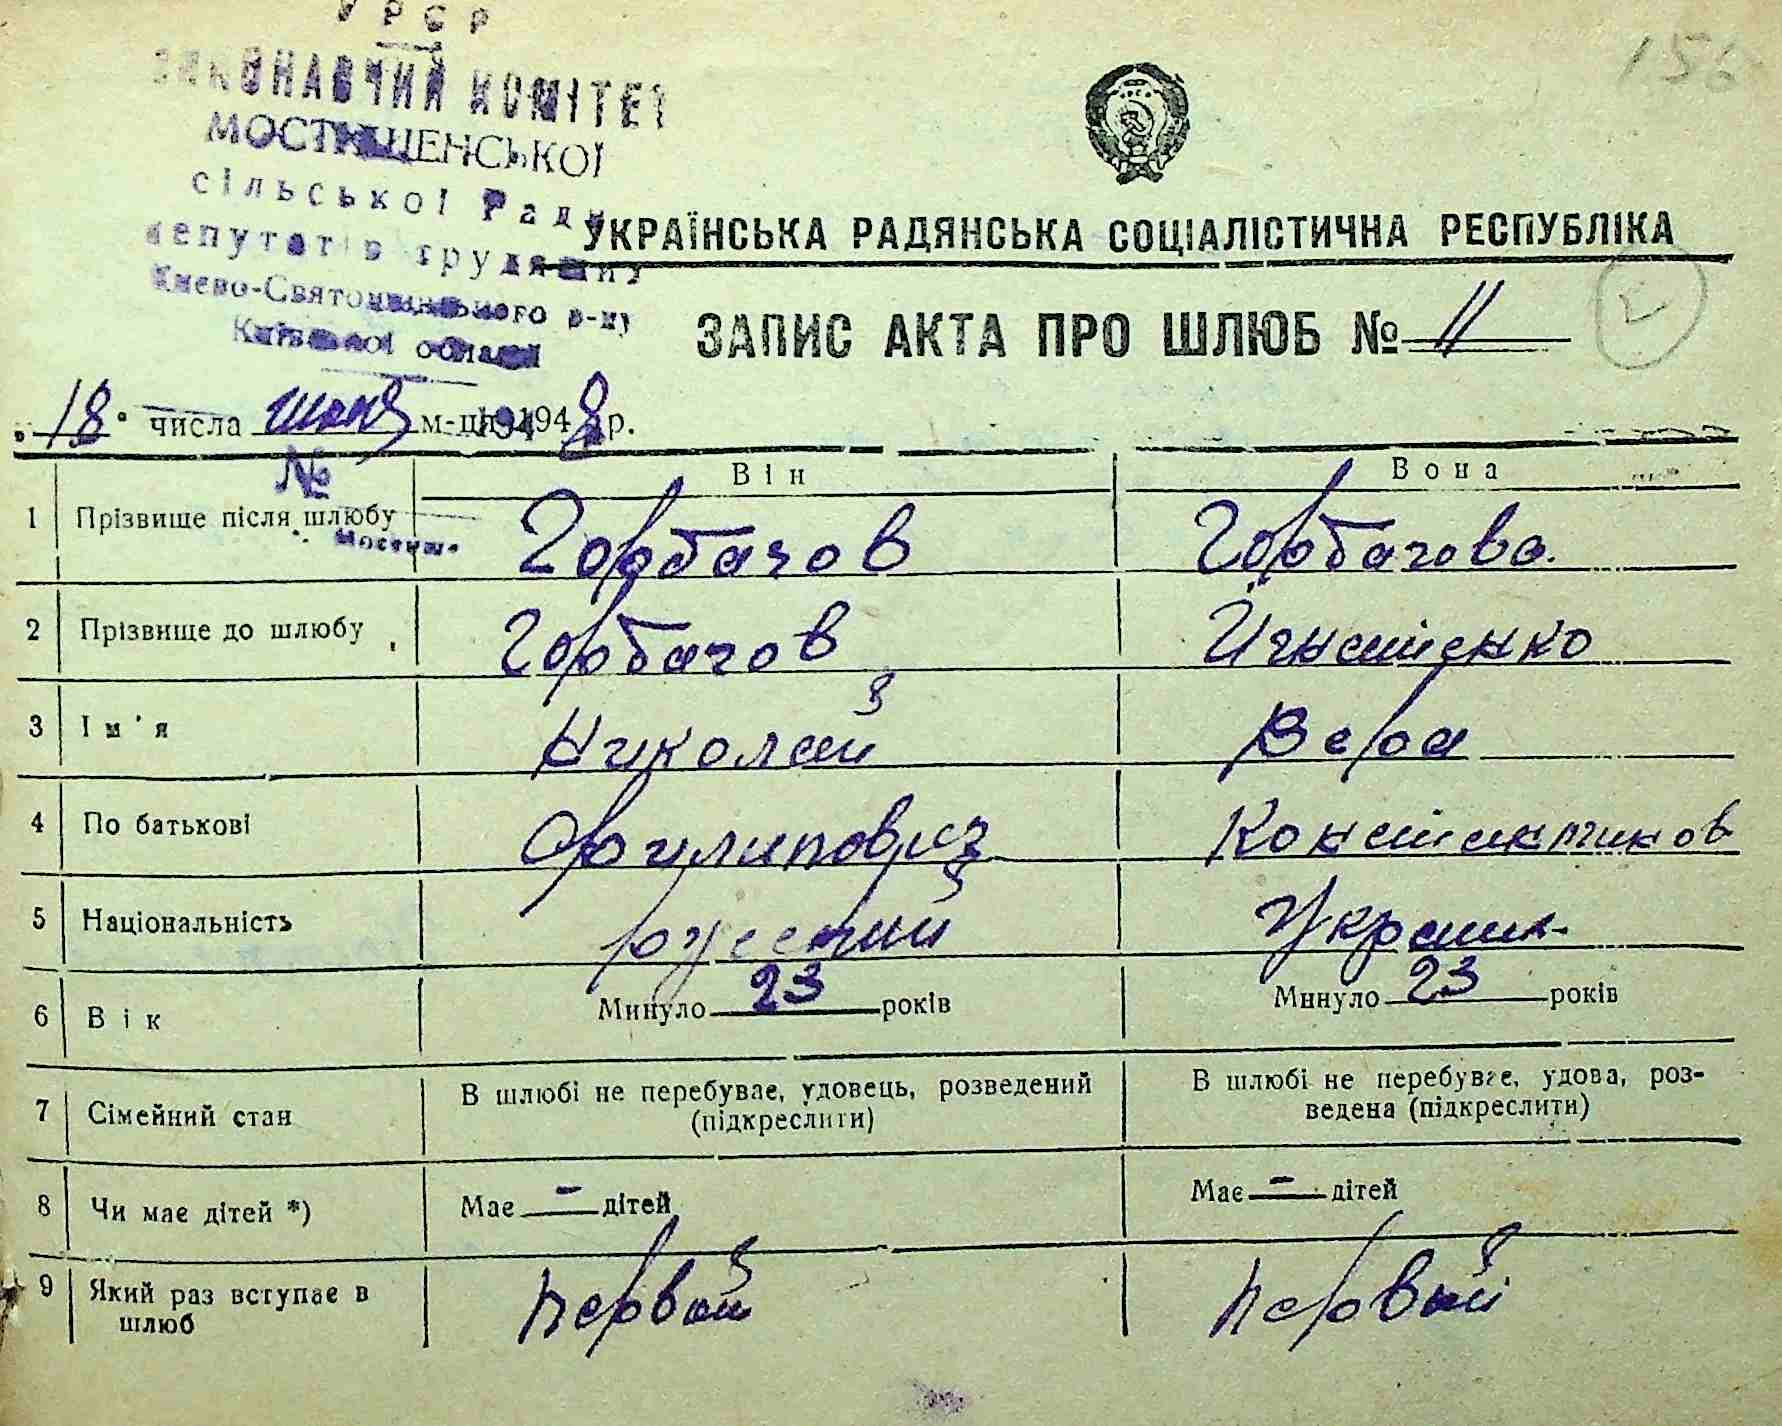 УРСР
ВИКОНАВЧИЙ КОМІТЕТ
МОСТИЩЕНСЬКОЇ
сільської Ради
депутатів трудящих
Києво-Святошинського р-ну
Київської області
156
УКРАЇНСЬКА РАДЯНСЬКА СОЦІАЛІСТИЧНА РЕСПУБЛІКА
ЗАПИС АКТА ПРО ШЛЮБ № 11
18 числа м-ця 1948 р.
№
Він Вона
1 Прізвище після шлюбу Горбачов Горбачова
2 Прізвище до шлюбу Горбачов
3 Ім'я Николай Вера
4 По батькові Филипович Константинов
5 Національність русский Украин.
6 Вік Минуло 23 років Минуло 23 років
7 Сімейний стан В шлюбі не перебуває, удовець, розведений (підкреслити) В шлюбі не перебуває, удова, роз-
ведена (підкреслити)
8 Чи має дітей *) Має — дітей Має — дітей
9 Який раз вступає в
шлюб первый первый